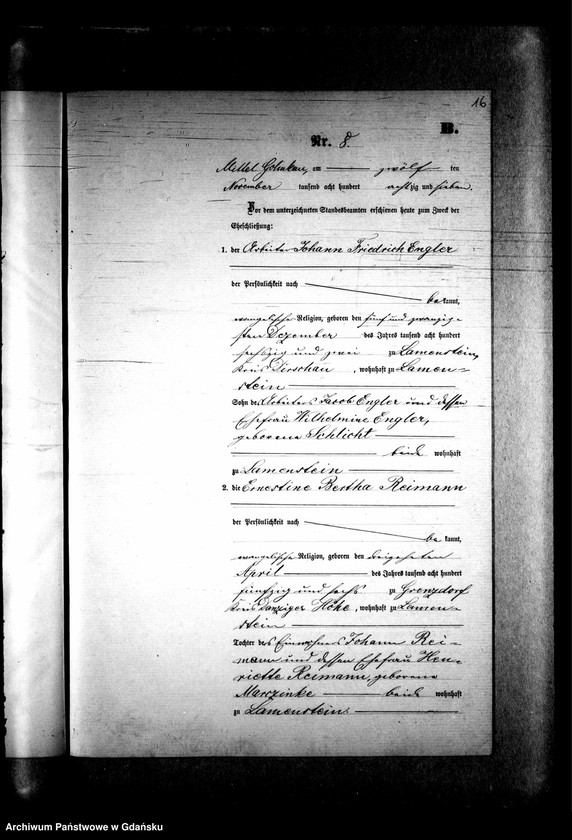 16
B.
Nr. 8.
Mittel Golmkau, am zwölf ten
November tausend acht hundert achtzig und sieben.
Vor dem unterzeichneten Standesbeamten erschienen heute zum Zweck der
Eheschließung:
1. der Arbeiter Johann Friedrich Engler
der Persönlichkeit nach
bekannt,
evangelische Religion, geboren den fünf und zwanzig-
sten Dezember des Jahres tausend acht hundert
sechszig und zwei zu Lamenstein,
Kreis Dirschau, wohnhaft zu Lamen-
stein
Sohn des Arbeiters Jacob Engler und dessen
Ehefrau Wilhelmine Engler,
geborene Schlicht
beide wohnhaft
zu Lamenstein
2. die Ernestine Bertha Reimann
der Persönlichkeit nach
be kannt,
evangelische Religion, geboren den dreizehnten
April des Jahres tausend acht hundert
fünfzig und sechs zu Grenzdorf
Kreis Danziger Höhe, wohnhaft zu Lamen-
stein
Tochter des Einwohners Johann Rei-
mann und dessen Ehefrau Hen-
riette Reimann, geborene
Marczinke beide wohnhaft
zu Lamenstein
Archiwum Państwowe w Gdańsku